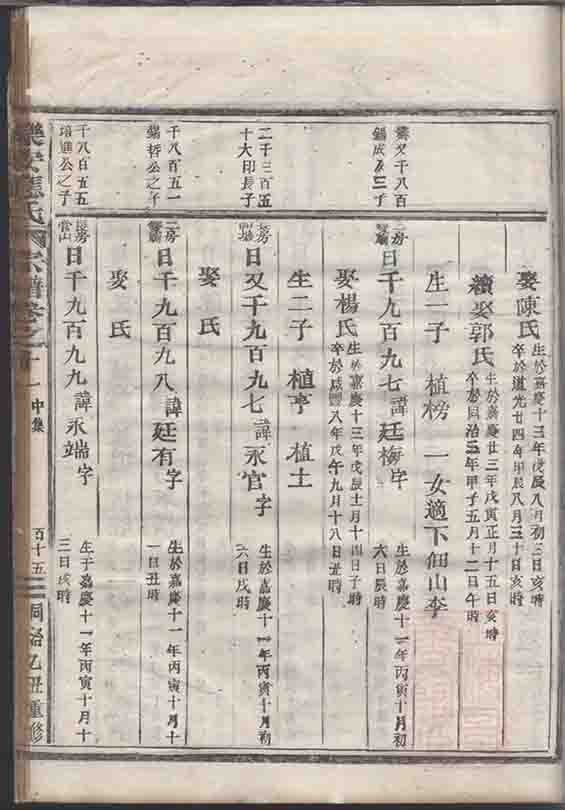 娶陳氏
生於嘉慶十三年戊辰八月初三日亥時
卒於道光廿四年甲辰八月三十日亥時
續娶郭氏
生於嘉慶廿三年戊寅正月十五日亥時
卒於同治三年甲子五月十二日午時
生一子 植榜 一女適下佃山李
業又千八百
錫成公三子
二房
日千九百九七諱廷梅字
生於嘉慶十一年丙寅十月初
六日辰時
娶楊氏
生於嘉慶十三年戊辰十一月十四日子時
卒於咸豐八年戊午九月十八日丑時
生二子 植亨 植土
二千三百五
十大印長子
房
日又千九百九七諱永官字
生於嘉慶十一年丙寅十月初
六日戌時
娶氏
千八百五一
錫哲公之子
二房
日千九百九八諱廷有字
生於嘉慶十一年丙寅十月十
一日丑時
娶氏
千八百五五
培進公之子
房
日千九百九九諱永端字
生于嘉慶十一年丙寅十月十
三日戌時
樂安 氏 宗譜卷之十一 中集
百十五
同治乙丑重修